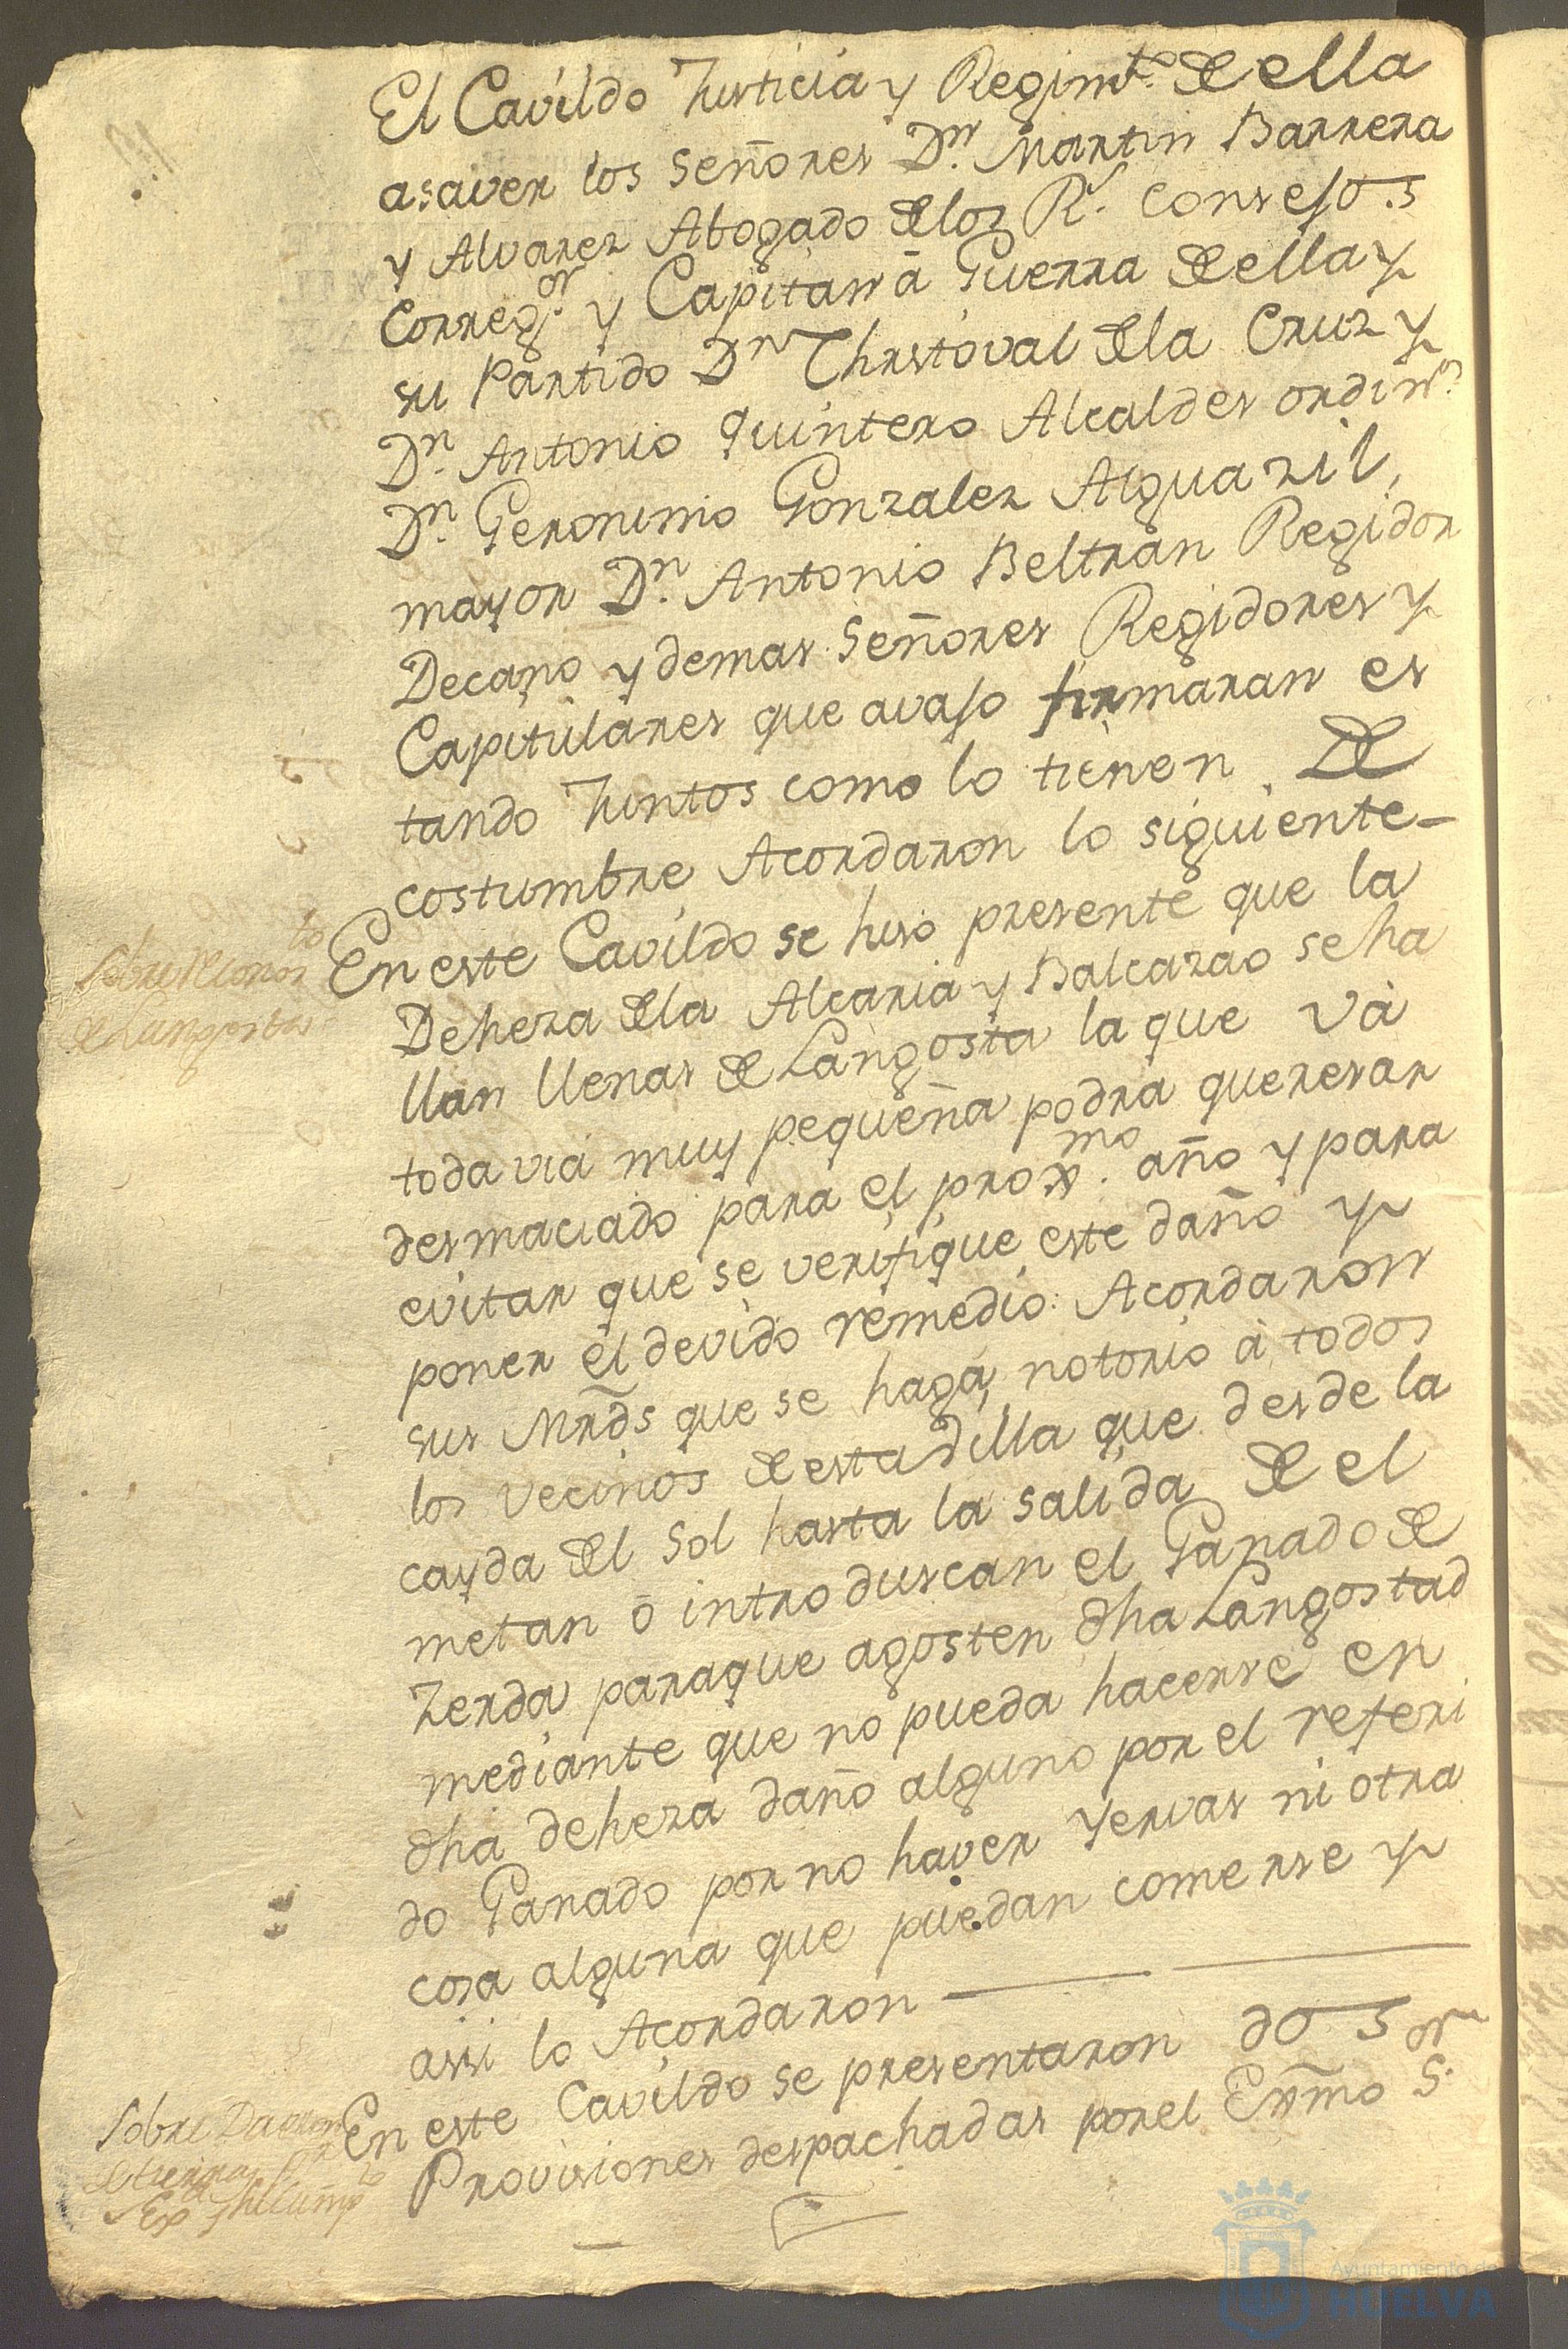 El Cavildo Justicia y Regimto. de ella
asaver los señores Dn. Martin Barrera
y Alvarez Abogado de los Rs. Consejos
Corregor. y Capitan â Guerra de ella y
su Partido Dn Chrstoval de la Cruz y
Dn. Antonio Quintero Alcaldes ordinos.
Dn. Geronimo Gonzalez Alguazil,
mayor Dn. Antonio Beltran Regidor
Decano y demas Señores Regidores y
Capitulares que avajo firmaran es
tando Juntos como lo tienen de
costumbre Acordaron lo siguiente-
Sobre
to
de Langostas
En este Cavildo se hiso presente que la
Deheza de la Alcaria y Balcazao se ha
llan llenas de Langosta la que vá
toda via muy pequeña podra queresar
desmaciado para el proxmo. año y para
evitar que se verifique este daño y
poner el devido remedio: Acordaron
sus Mrds que se haga notorio à todos
los vecinos de esta Villa que desde la
cayda del Sol hasta la salida de el
metan ô introduscan el Ganado de
Zerda paraque agosten dha Langosta d
mediante que no pueda hacerse en
dha deheza daño alguno por el referi
do Ganado por no haver Yervas ni otra
cosa alguna que puedan comerse y
assi lo Acordaron
Sobre
En este Cavildo se presentaron dos
Provisiones despachadas por el Exmo Sor.
Ayuntamiento de
HUELVA